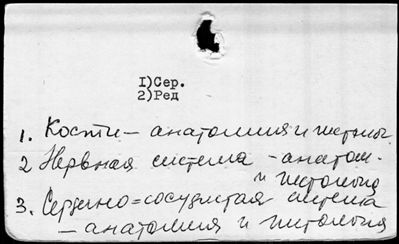 1)Сер.
2)Ред
1. Кости - анатомия и
2 Нервная система - анатом.
и гистология
3. Сердечно=сосудистая система
- анатомия и гистология